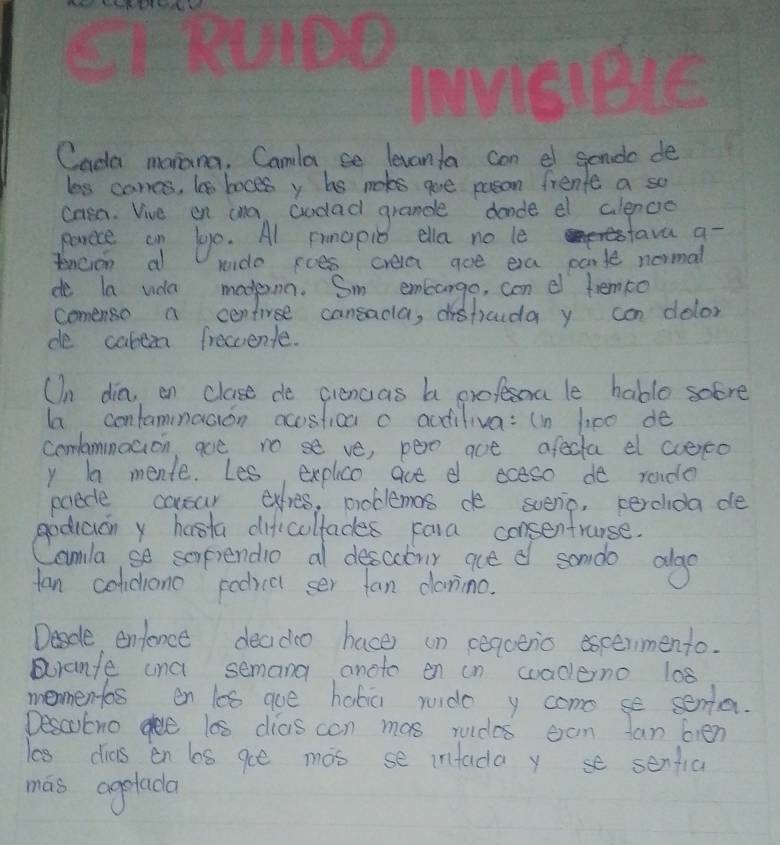 El RUIDO
INVISIBLE
Cada mañana. Camila se levanta con el sonido de
los carros, las boces y las motos que pasan frente a su
casa. Vive en una ciudad grande donde el cilencio
parece un lujo. Al principio ella no le prestava a-
tención al ruido pues creia que era parte normal
de la vida moderna. Sin embargo, con el tiempo
comenso a centirse cansada, distraida y con dolor
de cabeza frecuente.
Un dia, en clase de ciencias la profesora le hablo sobre
la contaminación acustica o auditiva: Un tipo de
contaminación que no se ve, pero que afecta el cuerpo
y la mente. Les explico que el eceso de ruido
puede causar extres, problemas de sueño, perdida de
audición y hasta dificultades para consentrarse.
Camila se sorprendio al descubrir que el sonido algo
tan cotidiano podria ser tan dañino.
Desde entonce decidio hacer un pequeño esperimento.
Durante una semana anoto en un cuaderno los
momentos en los que habia ruido y como se sentia.
Descubrio que los dias con mas ruidos eran tan bien
los dias en los que más se infada y se sentia
más agotada